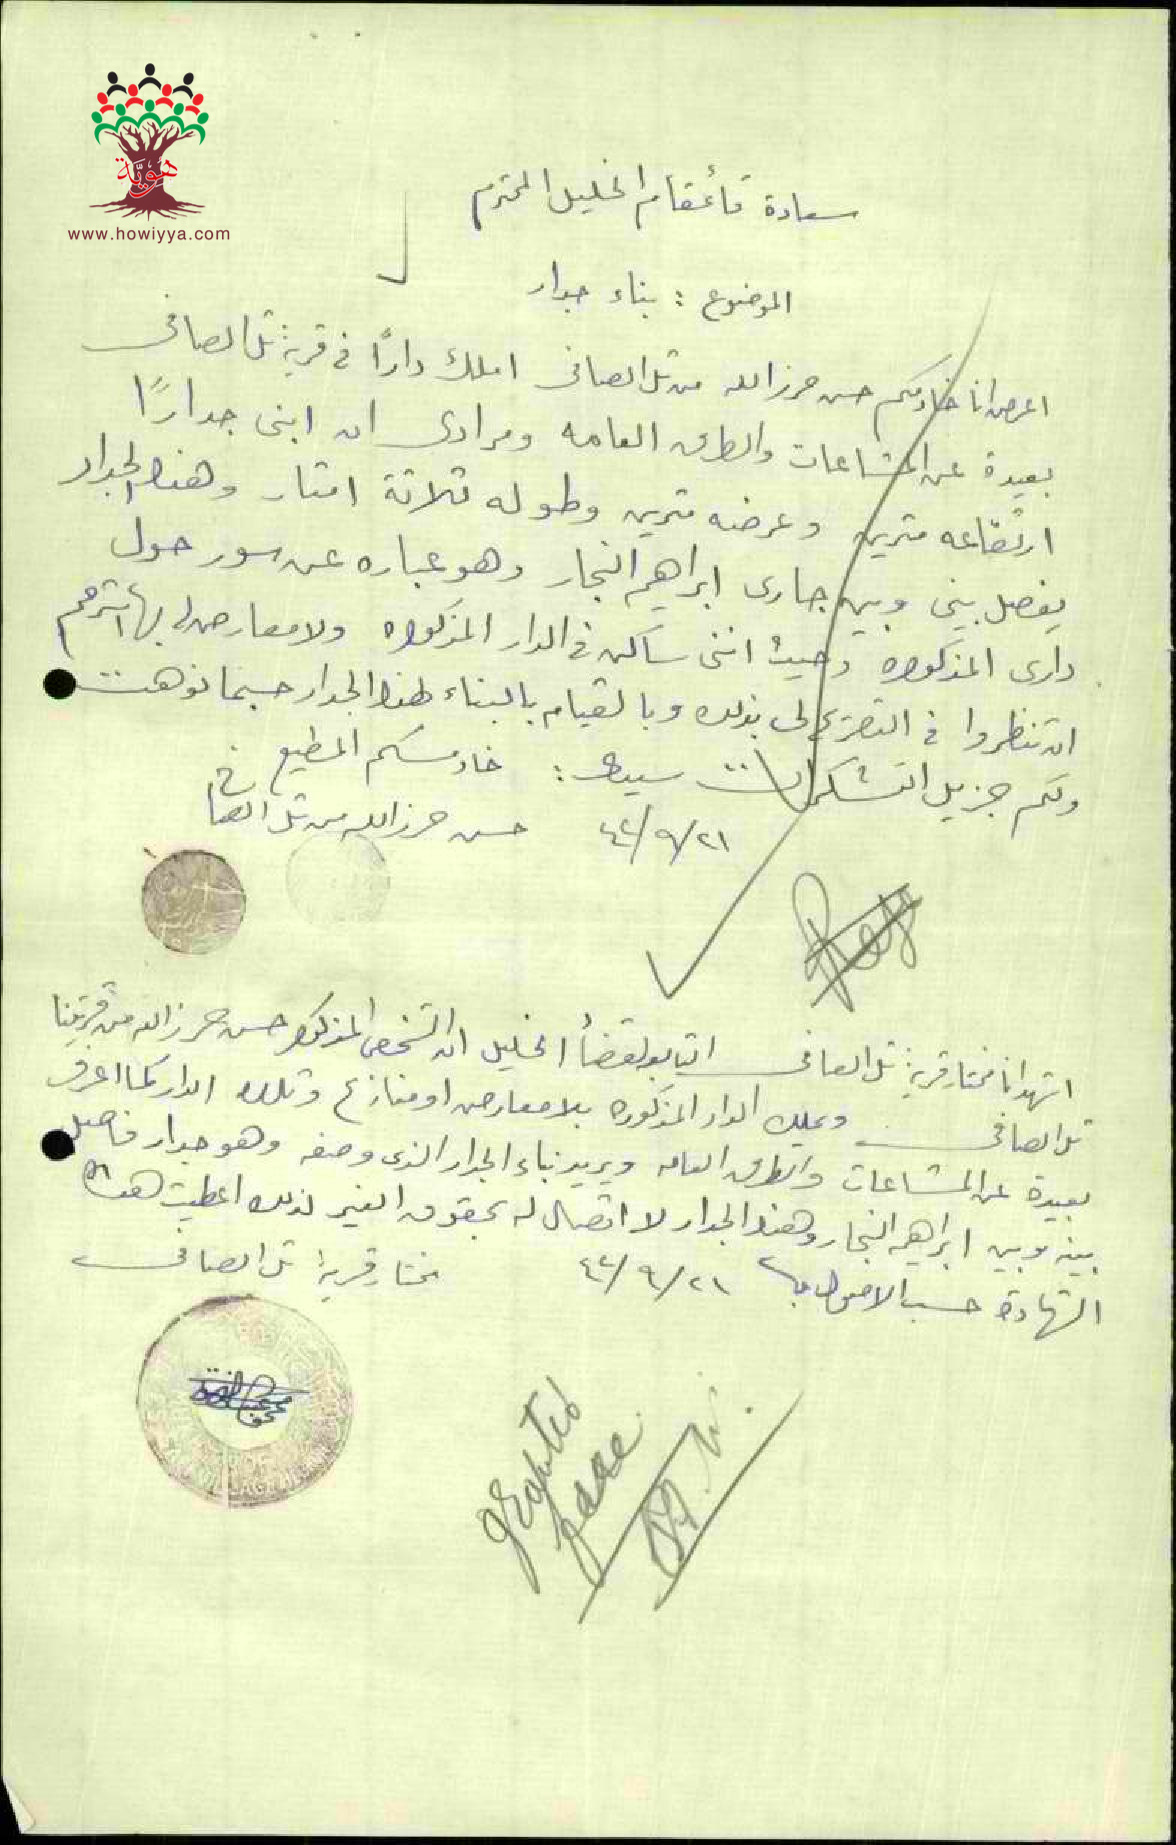 هوية
www.howiyya.com
سعادة قائمقام الخليل المحترم
الموضوع : بناء جدار
اعرض انا خادمكم حسن حرزالله من تل الصافى املك دارًا في قرية تل الصافى
بعيدة عن المشاعات والطرق العامه ومرادى ان ابنى جدارًا
ارتفاعه مترين وعرضه مترين وطوله ثلاثة امتار وهذا الجدار
يفصل بينى وبين جارى ابراهيم النجار وهو عباره عن سور حول
دارى المذكوره وحيث اننى ساكن في الدار المذكوره ولا معارض لى بها استرحم
ان تنظروا في التصريح لى بذلك وبالقيام بالبناء لهذا الجدار حسبما نوهت
ولكم جزيل التشكرات سيدى : خادمكم المطيع
٤٢/٩/٢١ حسن حرزالله من تل الصافي
اشهد انا مختار قرية تل الصافى التابع لقضأ الخليل ان الشخص المذكور حسن حرزالله من قريتنا
تل الصافى ويملك الدار المذكوره بلا معارض او منازع وتلك الدار كما اعرف
بعيدة عن المشاعات والطرق العامه ويريد بناء الجدار الذى وصفه وهو جدار فاصل
بينه وبين ابراهيم النجار وهذا الجدار لا اتصال له بحقوق الغير لذلك اعطيت هذه
الشهادة حسب الاصول ٤٢/٩/٢١ مختار قرية تل الصافى
granted